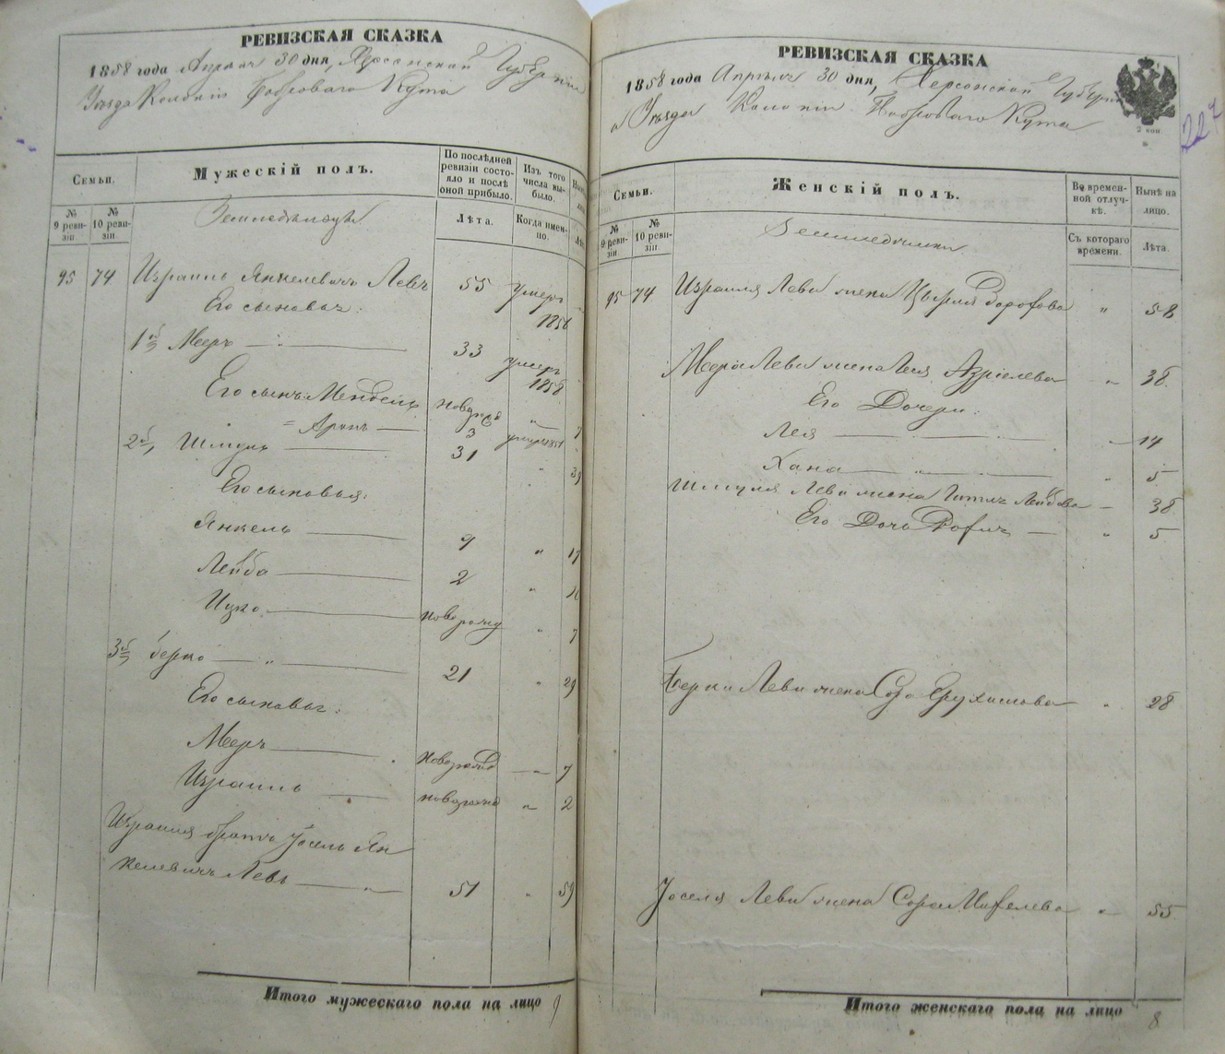 РЕВИЗСКАЯ СКАЗКА
1858 года Апреля 30 дня, Херсонской Губерніи
Уезда Колоніи Боброваго Кута
Семьи.
Мужескій полъ.
По послѣдней ревизіи состояло и послѣ оной прибыло.
Изъ того числа выбыло.
№ 9 ревизіи.
№ 10 ревизіи.
Земледельцы
Лѣта.
Когда именно.
95 74 Израиль Янкелевичъ Леви 55 умеръ 1856
Его сыновья:
1й Мееръ 33 умеръ 1858
Его сынъ Мендель новорожд 7
Аронъ 3 умеръ 1851
2й Шмуль 31 39
Его сыновья:
Янкель 9 17
Лейба 2 10
Ицко новорожд 7
3й Берко 21 29
Его сыновья:
Мееръ новорожд 7
Израиль новорожд 2
Израиля братъ Іосель Ян
келевичъ Леви 51 59
Итого мужескаго пола на лицо 9
РЕВИЗСКАЯ СКАЗКА
1858 года Апреля 30 дня, Херсонской Губерніи
Уезда Колоніи Боброваго Кута
227
Семьи.
Женскій полъ.
Во временной отлучкѣ.
Нынѣ на лицо.
№ 9 ревизіи.
№ 10 ревизіи.
Съ котораго времени.
Лѣта.
95 74 Израиля Леви жена 58
Меера Леви жена Азріелева 38
Его Дочери:
Лея 14
Хана 5
Шмуля Леви жена Лейбова 38
Его Дочь 5
Берки Леви жена Сора 28
Іоселя Леви жена Сора 55
Итого женскаго пола на лицо 8